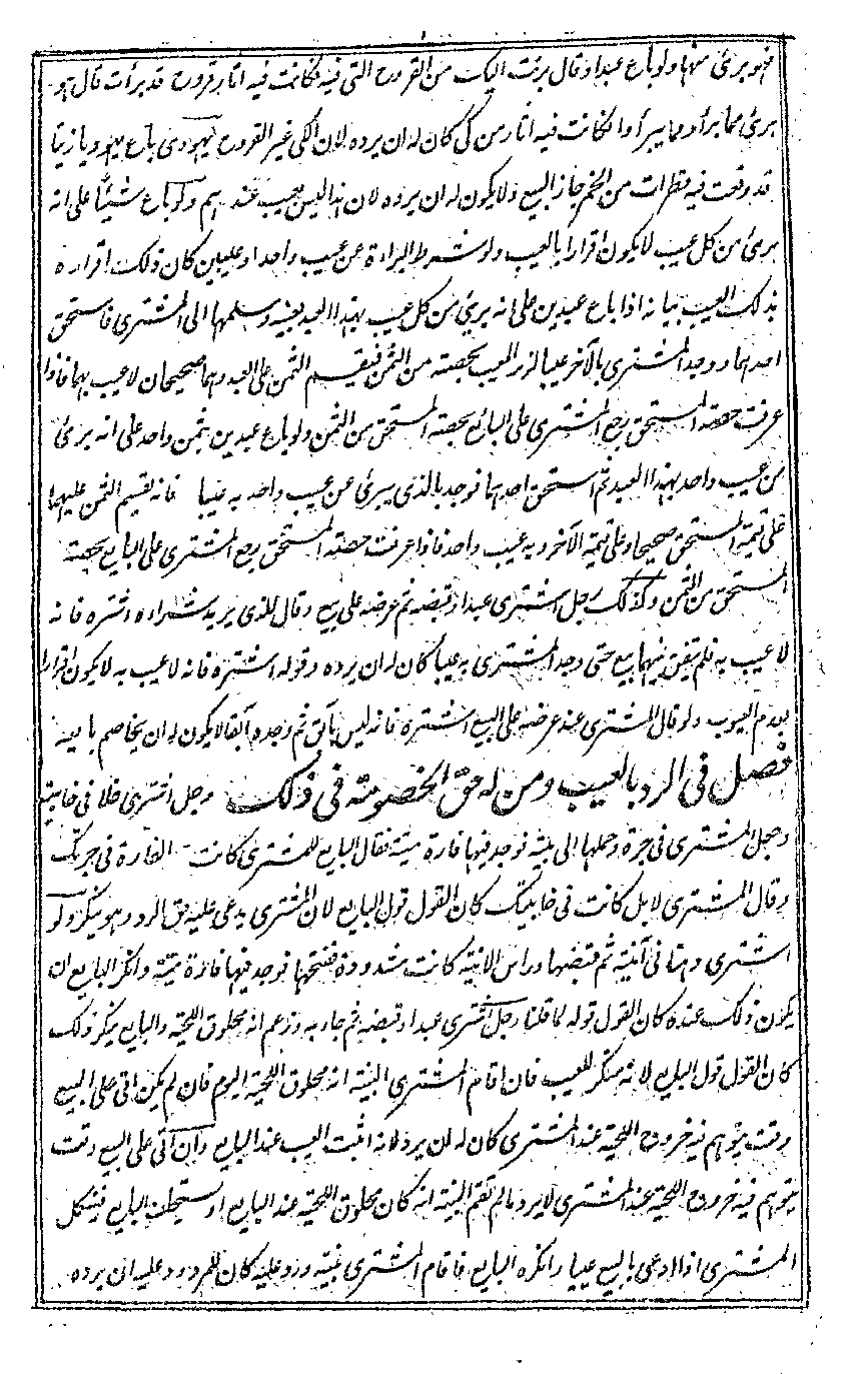 فهو برئ منها ولو باع عبدا وقال برئت اليك من القروح التى فيه فكانت فيه اثار قروح قد برأت قال هو
برئ مما برأ ومما يبرأ وان كانت فيه اثار من كى كان له ان يرده لان الكى غير القروح يهودى باع يهوديا زيتا
قد وقعت فيه قطرات من الخمر جاز البيع ولا يكون له ان يرده لان هذا ليس بعيب عندهم ولو باع شيئا على انه
برئ من كل عيب لا يكون اقرارا بالعيب ولو شرط البراءة عن عيب واحد او عيبين كان ذلك اقراره
بذلك العيب بيانه اذا باع عبدين على انه برئ من كل عيب بهذا العبد بعينه وسلمهما الى المشترى فاستحق
احدهما ووجد المشترى بالآخر عيبا لزمه المعيب بحصته من الثمن فيقسم الثمن على العبد وهما صحيحان لا عيب بهما فاذا
عرفت حصة المستحق رجع المشترى على البائع بحصة المستحق من الثمن ولو باع عبدين بثمن واحد على انه برئ
من عيب واحد بهذا العبد ثم استحق احدهما فوجد بالذى يبرئ عن عيب واحد به عيبا فانه يقسم الثمن عليهما
على قيمة المستحق صحيحا وعلى قيمة الآخر وبه عيب واحد فاذا عرفت حصة المستحق رجع المشترى على البايع بحصة
المستحق من الثمن وكذلك رجل اشترى عبدا وقبضه ثم عرضه على بيع وقال للذى يريد شراءه اشتره فانه
لا عيب به فلم يتفق بينهما بيع حتى وجد المشترى به عيبا كان له ان يرده وقوله اشتره فانه لا عيب به لا يكون اقرارا
بعدم العيوب ولو قال المشترى عند عرضه على البيع اشتره فانه ليس بآبق ثم وجده آبقا لا يكون له ان يخاصم بايعه
فصل فى الرد بالعيب ومن له حق الخصومة فى ذلك رجل اشترى خلا فى خابية
وجعل المشترى فى جرة وحملها الى بيته فوجد فيها فارة ميتة فقال البايع للمشترى كانت الفارة فى جرتك
وقال المشترى لا بل كانت فى خابيتك كان القول قول البايع لان المشترى يدعى عليه حق الرد وهو ينكر ولو
اشترى دهنا فى آنية ثم قبضها وراس الانية كانت مشدودة ففتحها فوجد فيها فارة ميتة وانكر البايع ان
يكون ذلك عنده كان القول قوله لما قلنا رجل اشترى عبدا وقبضه ثم جاء به وزعم انه محلوق اللحية والبايع ينكر ذلك
كان القول قول البايع لانه منكر للعيب فان اقام المشترى البينة انه محلوق اللحية اليوم فان لم يكن اتى على البيع
وقت يتوهم فيه خروج اللحية عند المشترى كان له ان يرد لانه اثبت العيب عند البايع وان اتى على البيع وقت
يتوهم فيه خروج اللحية عند المشترى لا يرد ما لم تقم البينة انه كان محلوق اللحية عند البايع او يستحلف البايع فينكل
المشترى اذا ادعى بالبيع عيبا وانكره البايع فاقام المشترى بينة ورد عليه كان للمردود عليه ان يرده